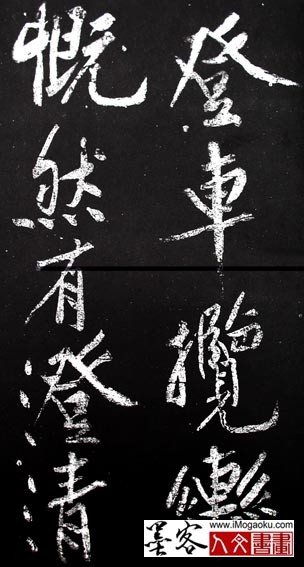 登車攬轡
慨然有澄清
www.iMogaoku.com
墨客
人文書畫